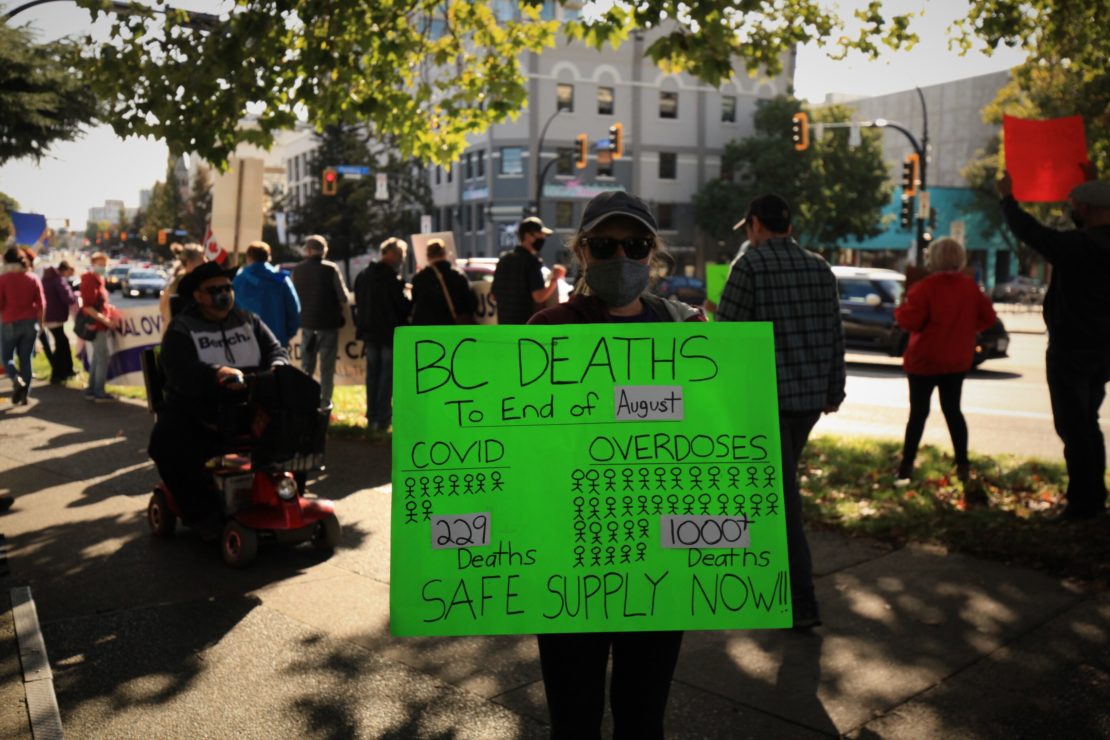 BC DEATHS
To End of August
COVID
229
Deaths
OVERDOSES
1000+
Deaths
SAFE SUPPLY NOW!!
Bench.